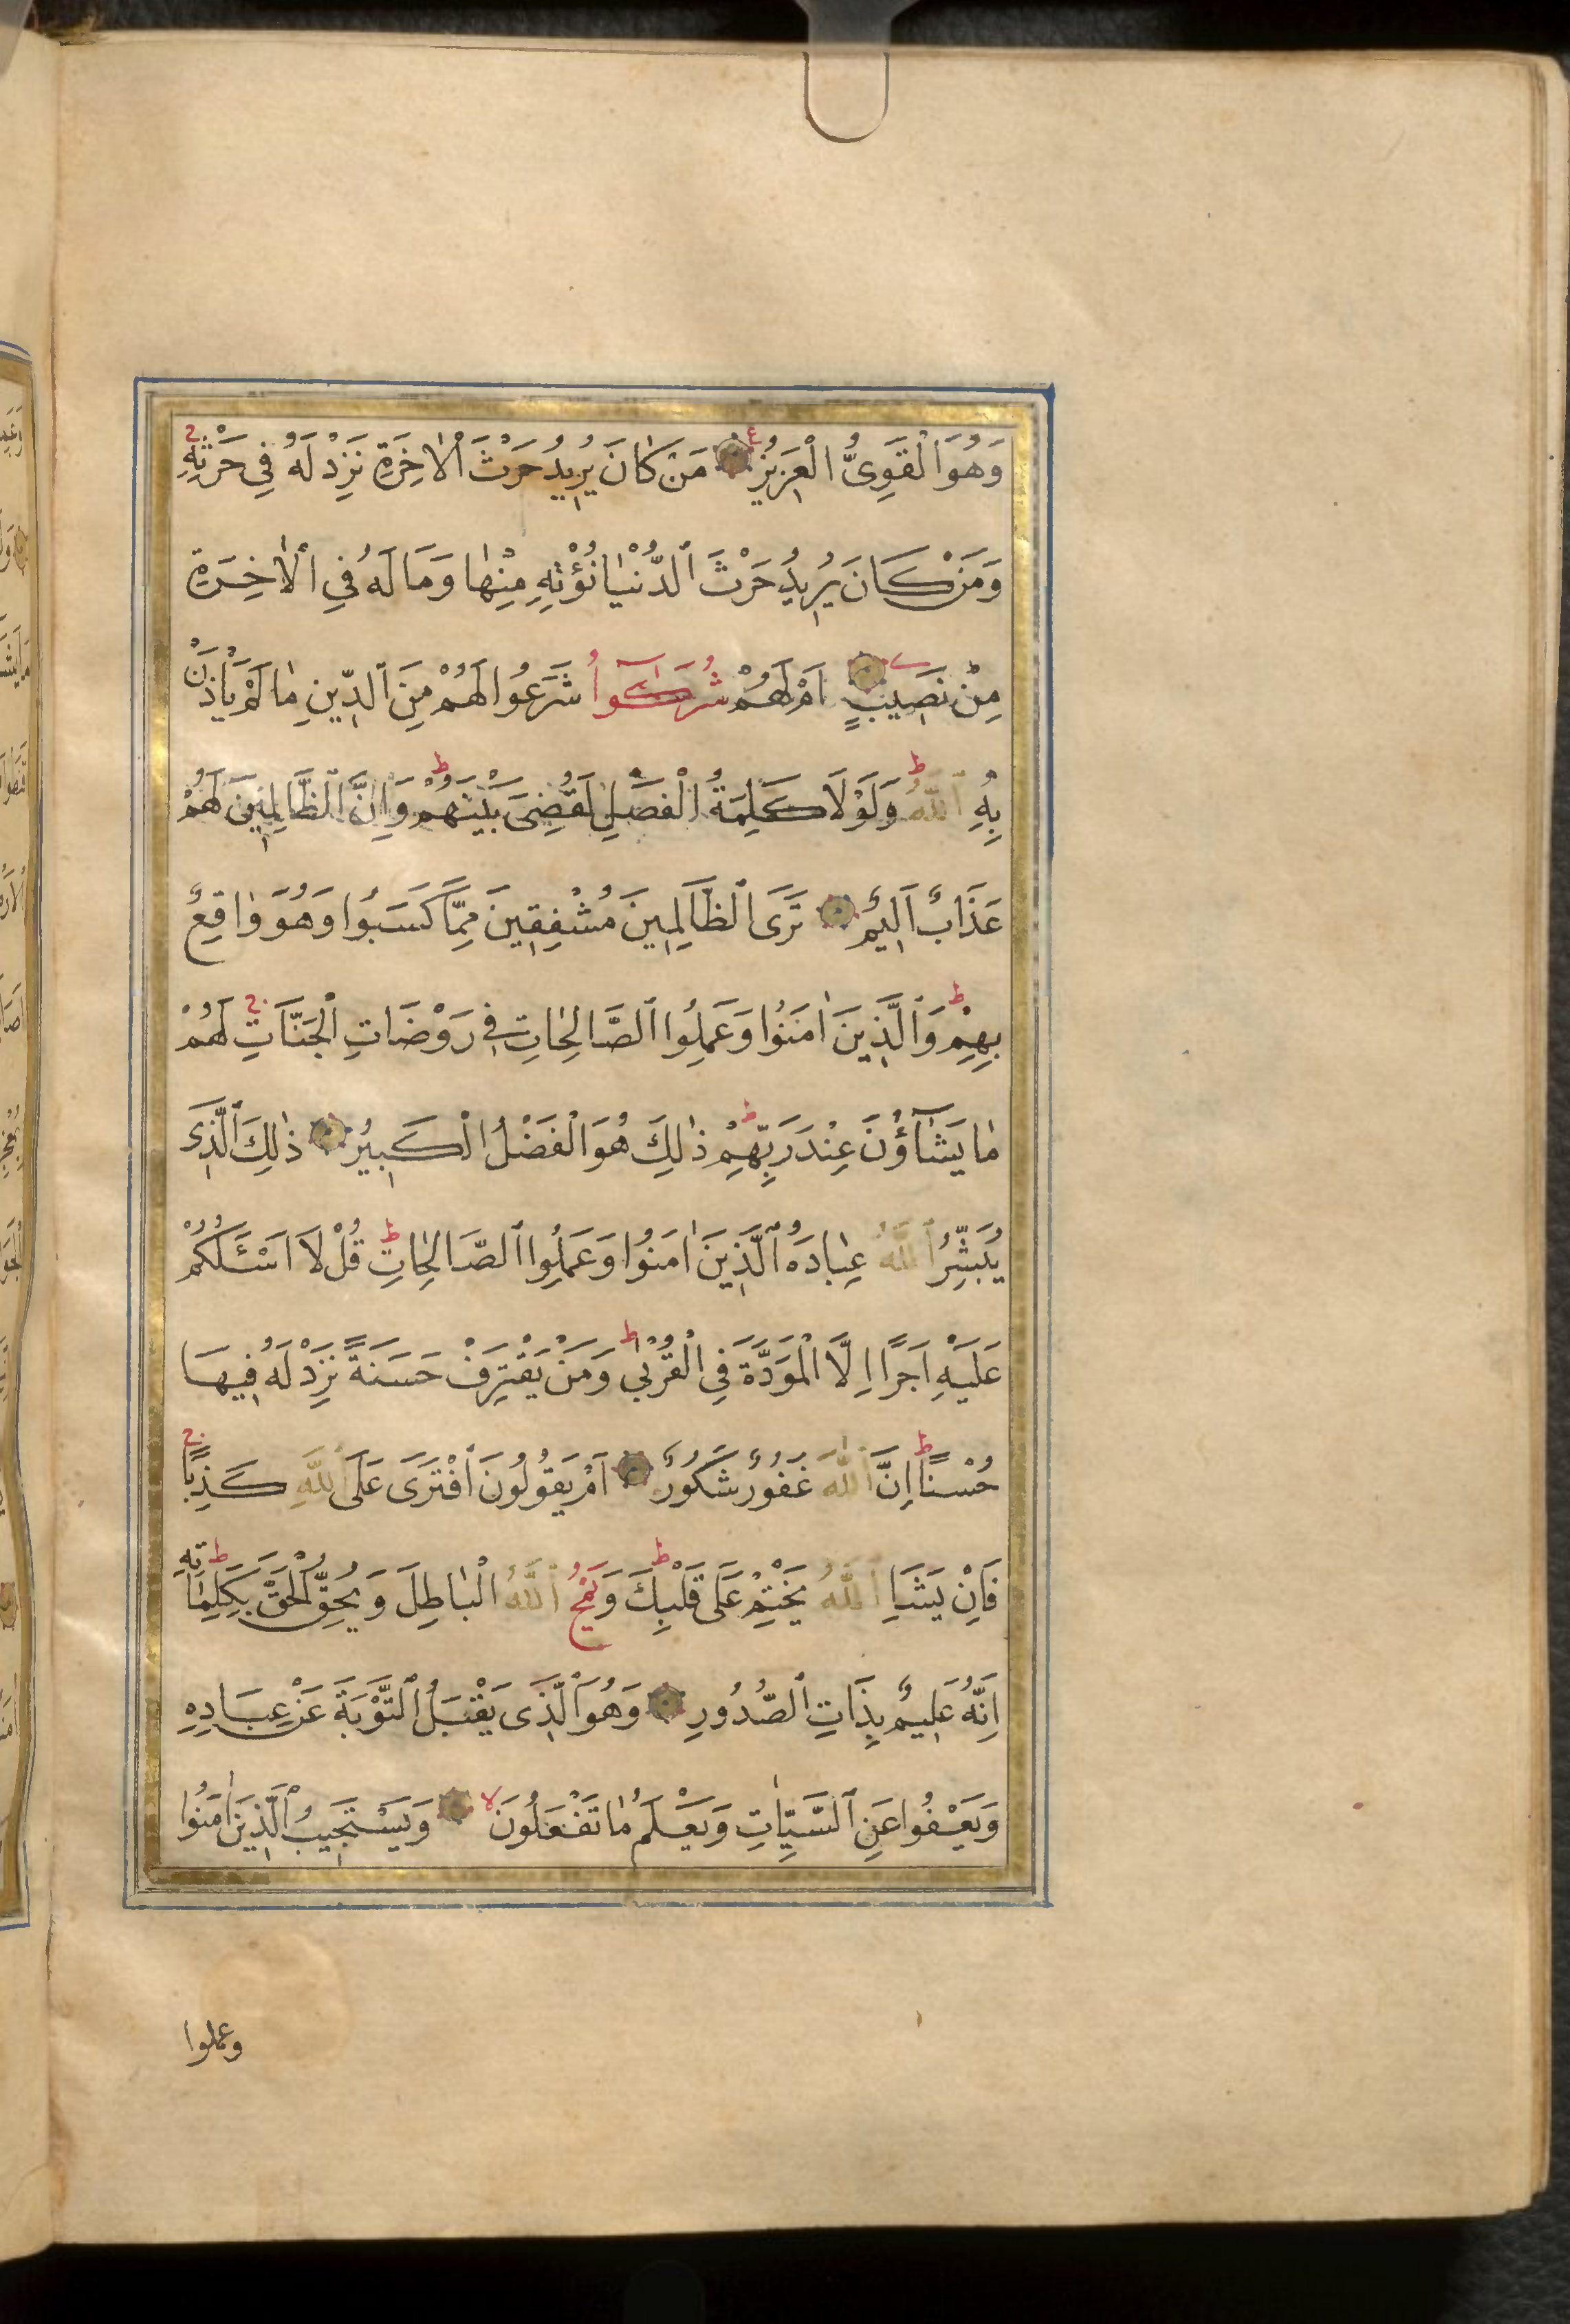 وَهُوَ الْقَوِىُّ الْعَزِيزُ ۝ مَنْ كَانَ يُرِيدُ حَرْثَ الْاٰخِرَةِ نَزِدْ لَهُ فِي حَرْثِهِ
وَمَنْ كَانَ يُرِيدُ حَرْثَ الدُّنْيٰا نُؤْتِهِ مِنْهٰا وَمَا لَهُ فِي الْاٰخِرَةِ
مِنْ نَصِيبٍ ۝ اَمْ لَهُمْ شُرَكٰٓؤُا شَرَعُوا لَهُمْ مِنَ الدِّينِ مٰا لَمْ يَأْذَنْ
بِهِ اللّٰهُ وَلَوْلَا كَلِمَةُ الْفَصْلِ لَقُضِىَ بَيْنَهُمْ وَاِنَّ الظَّالِمِينَ لَهُمْ
عَذَابٌ اَلِيمٌ ۝ تَرَى الظَّالِمِينَ مُشْفِقِينَ مِمَّا كَسَبُوا وَهُوَ وٰاقِعٌ
بِهِمْ وَالَّذِينَ اٰمَنُوا وَعَمِلُوا الصَّالِحٰاتِ فِي رَوْضَاتِ الْجَنَّاتِ لَهُمْ
مٰا يَشٰٓاؤُنَ عِنْدَ رَبِّهِمْ ذٰلِكَ هُوَ الْفَضْلُ الْكَبِيرُ ۝ ذٰلِكَ الَّذِى
يُبَشِّرُ اللّٰهُ عِبٰادَهُ الَّذِينَ اٰمَنُوا وَعَمِلُوا الصَّالِحٰاتِ قُلْ لَا اَسْئَلُكُمْ
عَلَيْهِ اَجْرًا اِلَّا الْمَوَدَّةَ فِي الْقُرْبٰى وَمَنْ يَقْتَرِفْ حَسَنَةً نَزِدْ لَهُ فِيهَا
حُسْنًا اِنَّ اللّٰهَ غَفُورٌ شَكُورٌ ۝ اَمْ يَقُولُونَ افْتَرَى عَلَى اللّٰهِ كَذِبًا
فَاِنْ يَشَاِ اللّٰهُ يَخْتِمْ عَلَى قَلْبِكَ وَيَمْحُ اللّٰهُ الْبٰاطِلَ وَيُحِقُّ الْحَقَّ بِكَلِمٰاتِهِ
اِنَّهُ عَلِيمٌ بِذَاتِ الصُّدُورِ ۝ وَهُوَ الَّذِى يَقْبَلُ التَّوْبَةَ عَنْ عِبَادِهِ
وَيَعْفُوا عَنِ السَّيِّاٰتِ وَيَعْلَمُ مٰا تَفْعَلُونَ ۝ وَيَسْتَجِيبُ الَّذِينَ اٰمَنُوا
وعملوا